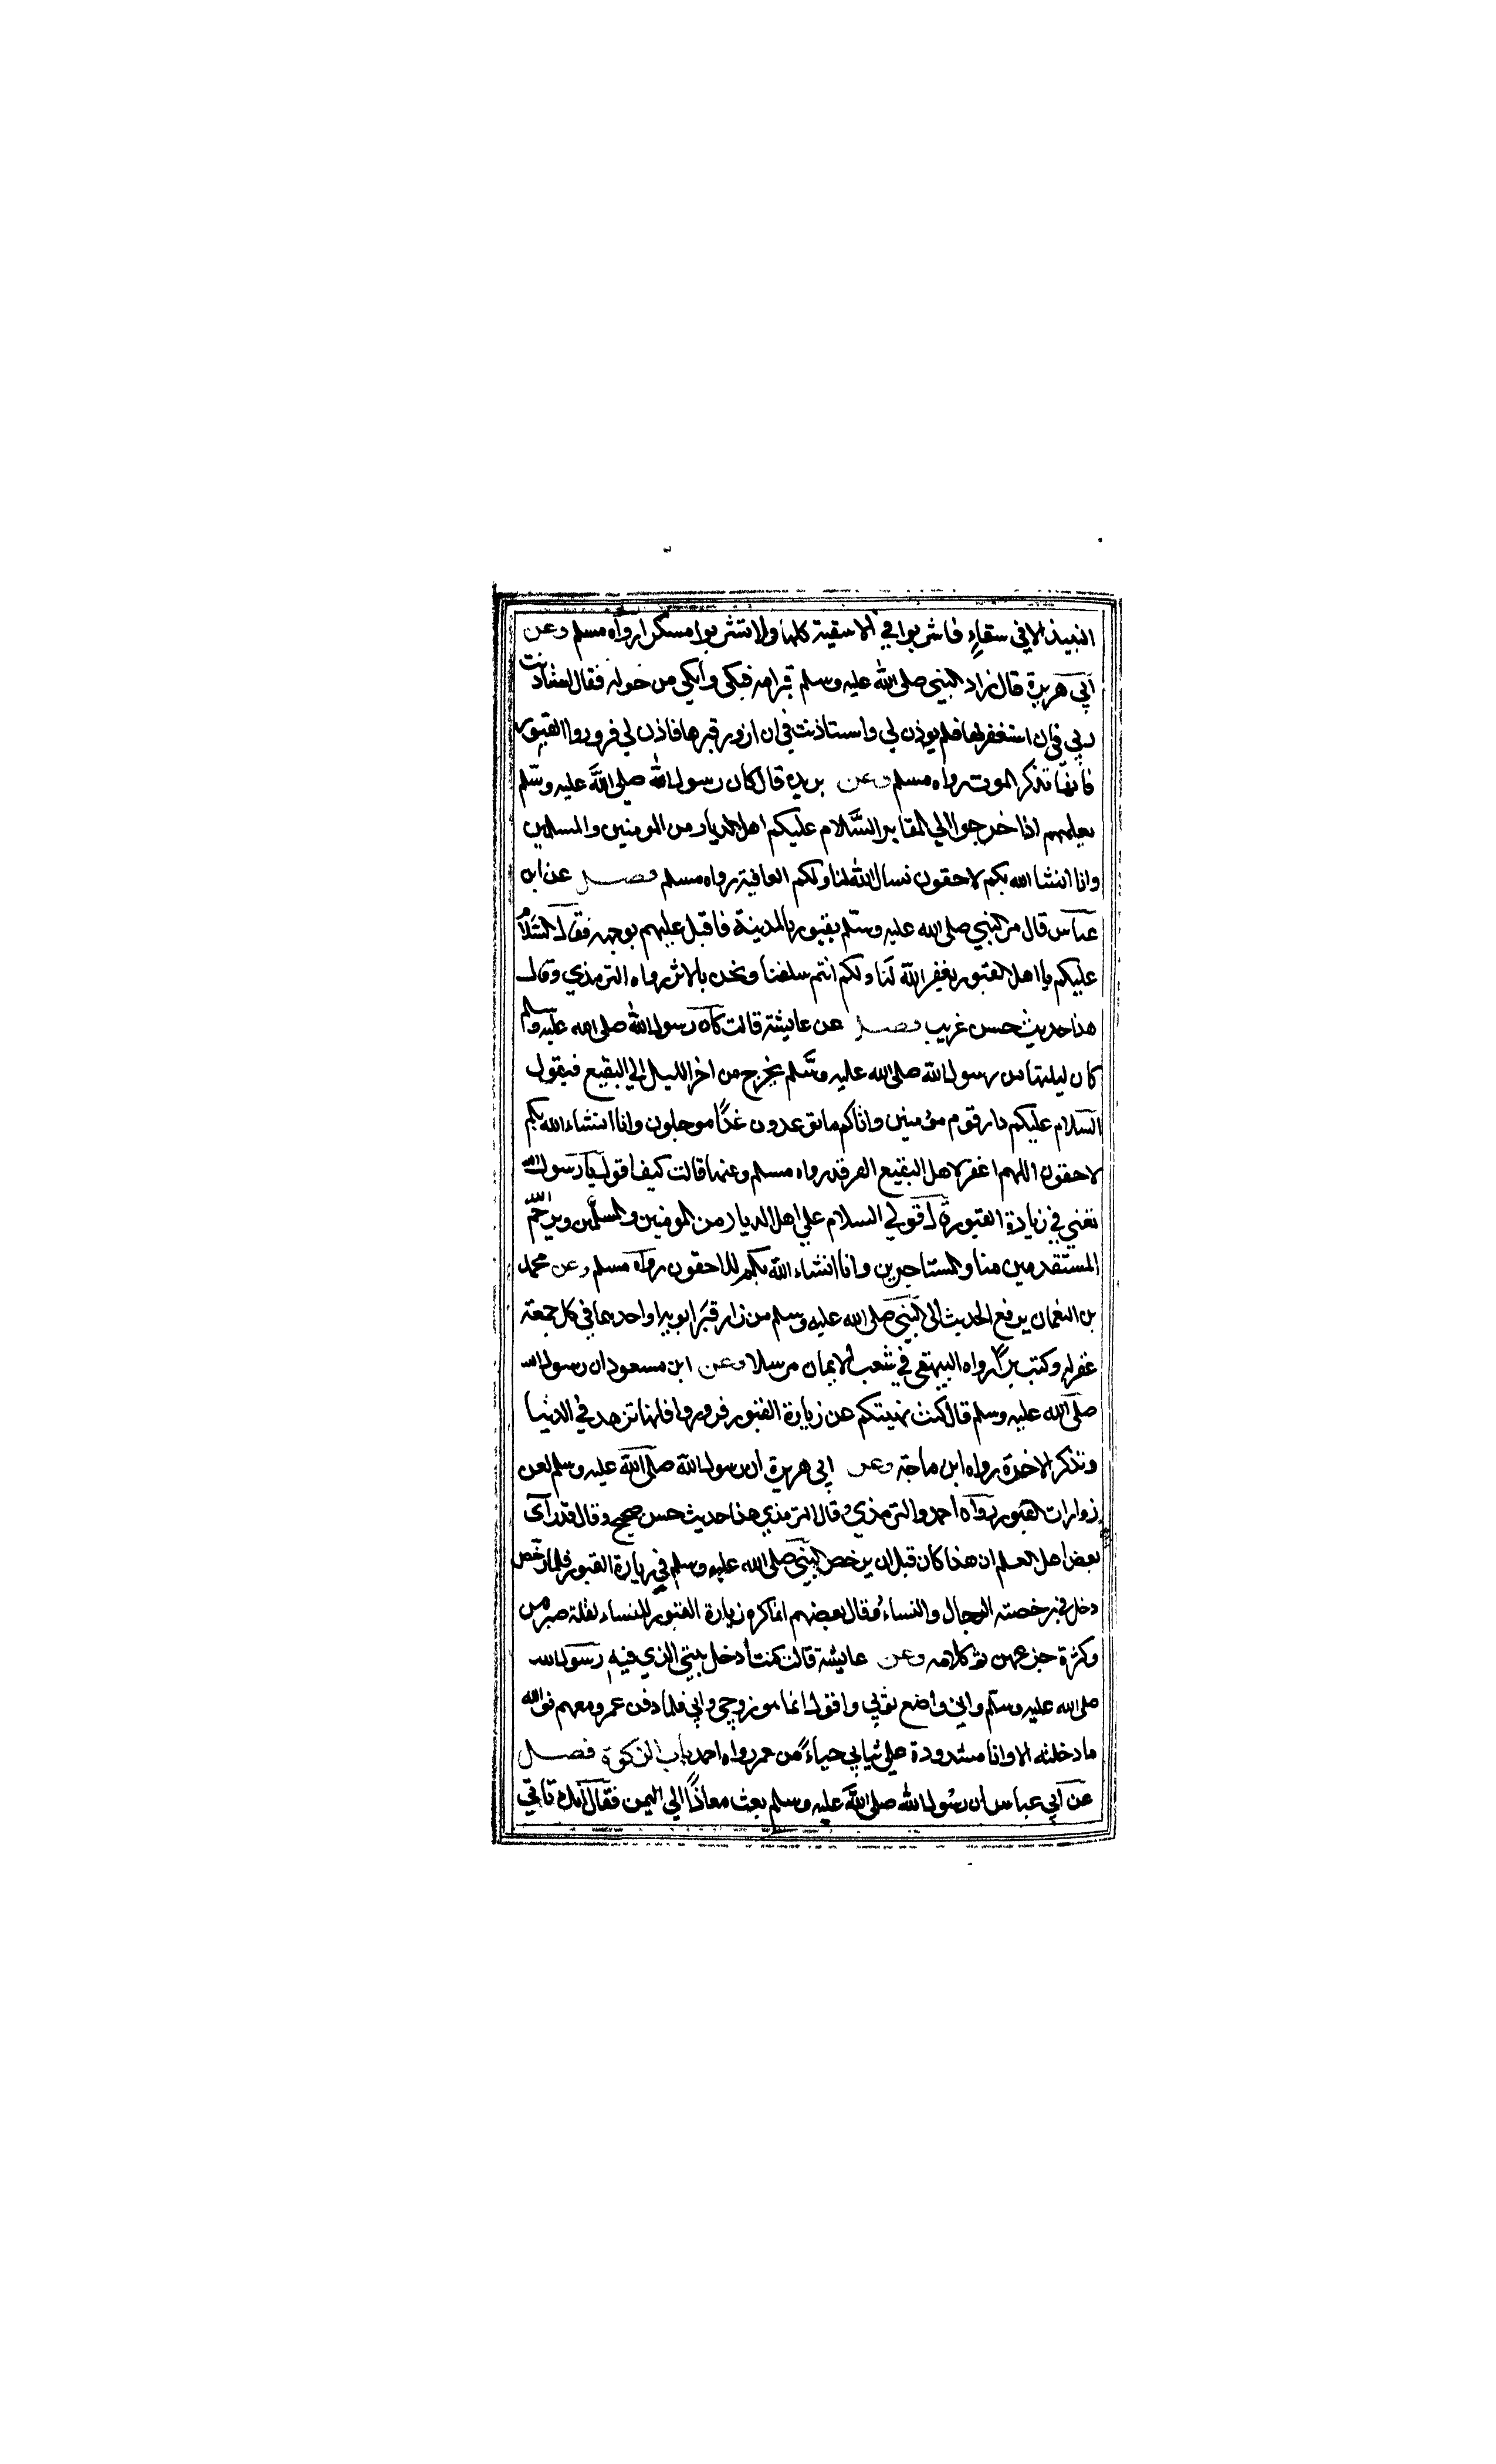 النبيذ الا في سقاء فاشربوا في الاسقية كلها ولا تشربوا مسكرا رواه مسلم وعن
ابي هريرة قال زار النبي صلى الله عليه وسلم قبر امه فبكى وابكى من حوله فقال استاذنت
ربي في ان استغفر لها فلم يوذن لي واستاذنت في ان ازور قبرها فاذن لي فزوروا القبور
فانها تذكر الموت رواه مسلم وعن بريده قال كان رسول الله صلى الله عليه وسلم
يعلمهم اذا خرجوا الي المقابر السلام عليكم اهل الديار من المومنين والمسلمين
وانا انشا الله بكم لاحقون نسال الله لنا ولكم العافية رواه مسلم فصل عن ابن
عباس قال مر النبي صلى الله عليه وسلم بقبور بالمدينة فاقبل عليهم بوجهه فقال السلام
عليكم يا اهل القبور يغفر الله لنا ولكم انتم سلفنا ونحن بالاثر رواه الترمذي وقال
هذا حديث حسن غريب فصل عن عايشة قالت كان رسول الله صلى الله عليه وسلم
كان ليلتها من رسول الله صلى الله عليه وسلم يخرج من اخر الليل الي البقيع فيقول
السلام عليكم دار قوم مؤمنين واتاكم ما توعدون غدًا موجلون وانا انشاء الله بكم
لاحقون اللهم اغفر لاهل البقيع الغرقد رواه مسلم وعنها قالت كيف اقول يا رسول الله
تعني في زيارة القبور قال قولي السلام علي اهل الديار من المومنين والمسلمين ويرحم الله
المستقدمين منا والمستاخرين وانا انشاء الله بكم للاحقون رواه مسلم وعن محمد
بن النعمان يرفع الحديث الى النبي صلى الله عليه وسلم من زار قبر ابويه او احدهما في كل جمعة
غفر له وكتب برًا رواه البيهقي في شعب الايمان مرسلا وعن ابن مسعود ان رسول الله
صلى الله عليه وسلم قال كنت نهيتكم عن زيارة القبور فزوروها فانها تزهد في الدنيا
وتذكر الاخرة رواه ابن ماجة وعن ابي هريرة ان رسول الله صلى الله عليه وسلم لعن
زوارات القبور رواه احمد والترمذي وقال الترمذي هذا حديث حسن صحيح وقال قد رأى
بعض اهل العلم ان هذا كان قبل ان يرخص النبي صلى الله عليه وسلم في زيارة القبور فلما رخص
دخل في رخصته الرجال والنساء وقال بعضهم انما كره زيارة القبور للنساء لقلة صبرهن
وكثرة جزعهن تم كلامه وعن عايشة قالت كنت أدخل بيتي الذي فيه رسول الله
صلى الله عليه وسلم واني واضع ثوبي واقول انما هو زوجي وابي فلما دفن عمر ومعهم فوالله
ما دخلته الا وانا مشدودة علي ثيابي حياءً من عمر رواه احمد باب الزكوة فصل
عن ابي عباس ان رسول الله صلى الله عليه وسلم بعث معاذًا الي اليمن فقال انك تاتي